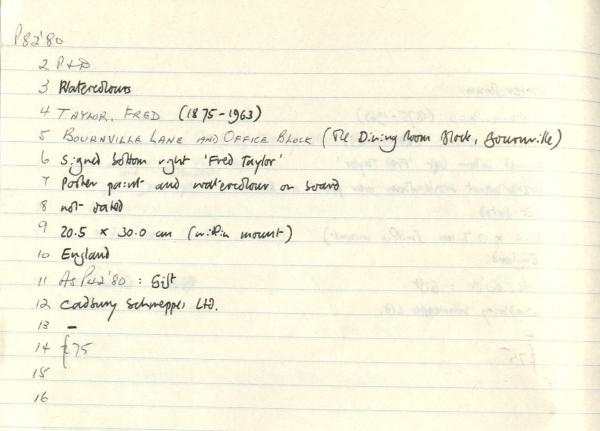 P82'80
2 P+D
3 Watercolours
4 TAYLOR, FRED (1875-1963)
5 BOURNVILLE LANE AND OFFICE BLOCK (The Dining Room Block, Bournville)
6 Signed bottom right 'Fred Taylor'
7 Poster paint and watercolour on board
8 not dated
9 20.5 x 30.0 cm (within mount)
10 England
11 As P42'80 : Gift
12 Cadbury Schweppes LTD.
13 –
14 £75
15
16